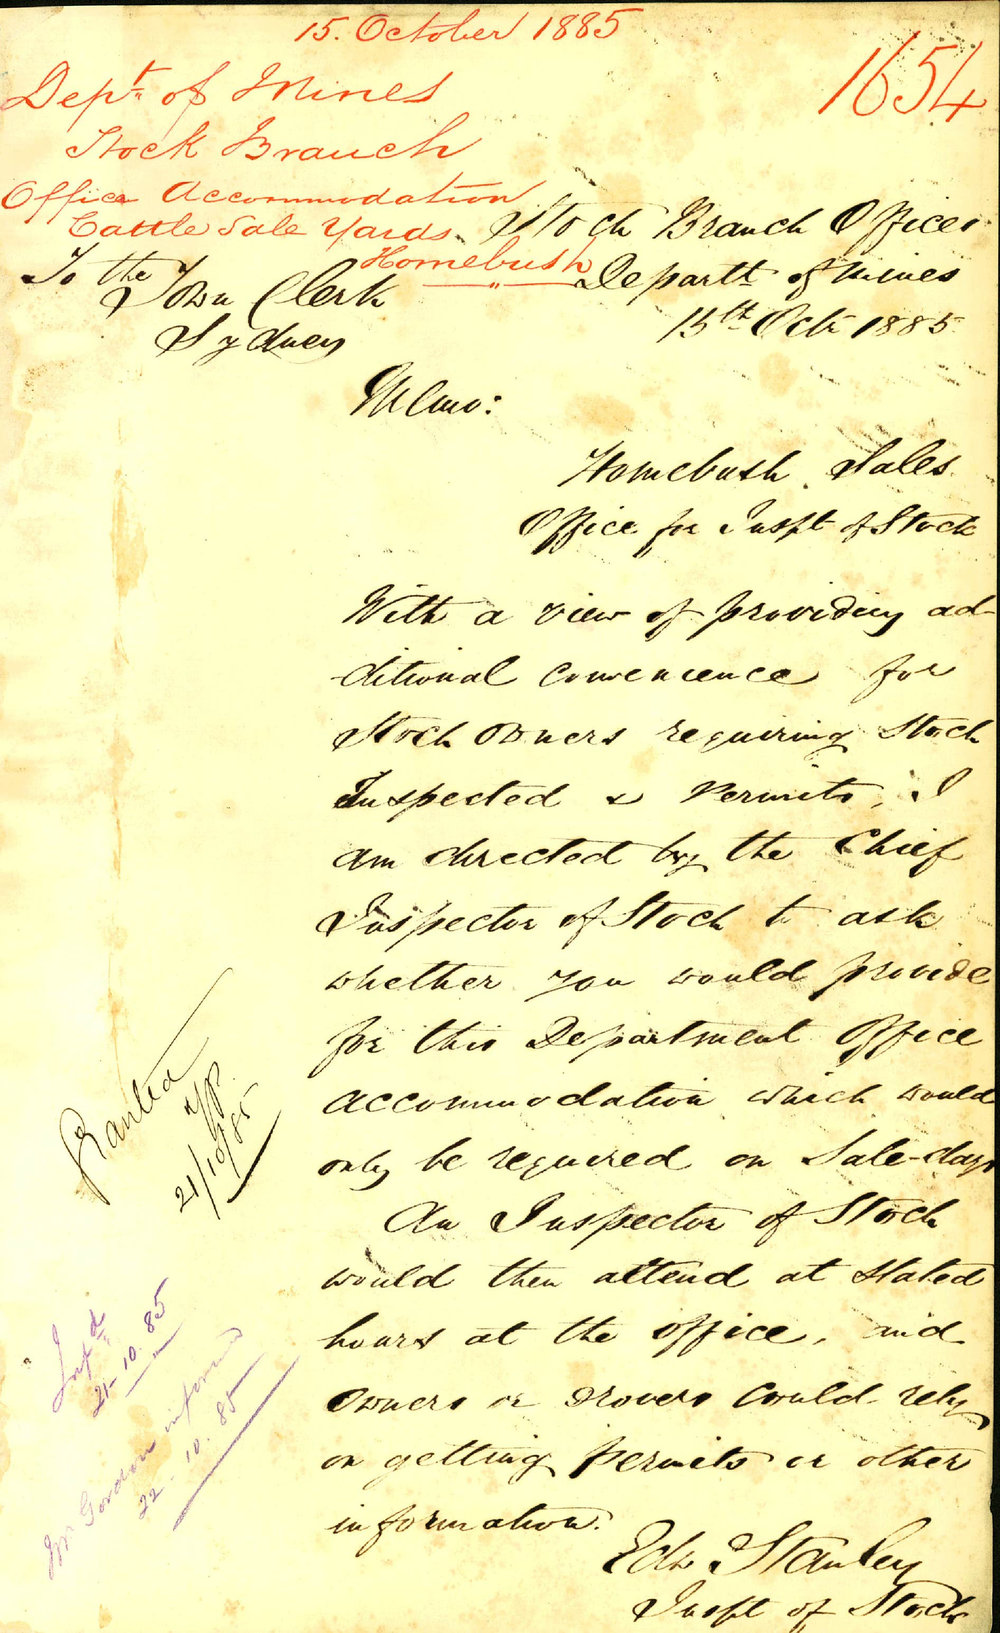 15. October 1885
1654
Dept. of Mines
Stock Branch
Office Accommodation
Cattle Sale Yards
Homebush
Stock Branch Offices
Departt of Mines
15th Oct 1885
To the
Town Clerk
Sydney
Memo:
Homebush Sales
Office for Inspt of Stock
With a view of providing ad-
ditional convenience for
Stock owners requiring Stock
Inspected & Permits, I
am directed by the Chief
Inspector of Stock to ask
whether you would provide
for this Department Office
accommodation which would
only be required on Sale-days
An Inspector of Stock
would then attend at stated
hours at the office, and
owners or drovers could rely
on getting permits or other
information.
Edw Stanley
Inspt of Stock
Granted
21/10/85
Infd
21-10.85
Mr Gordon informed
22-10.85